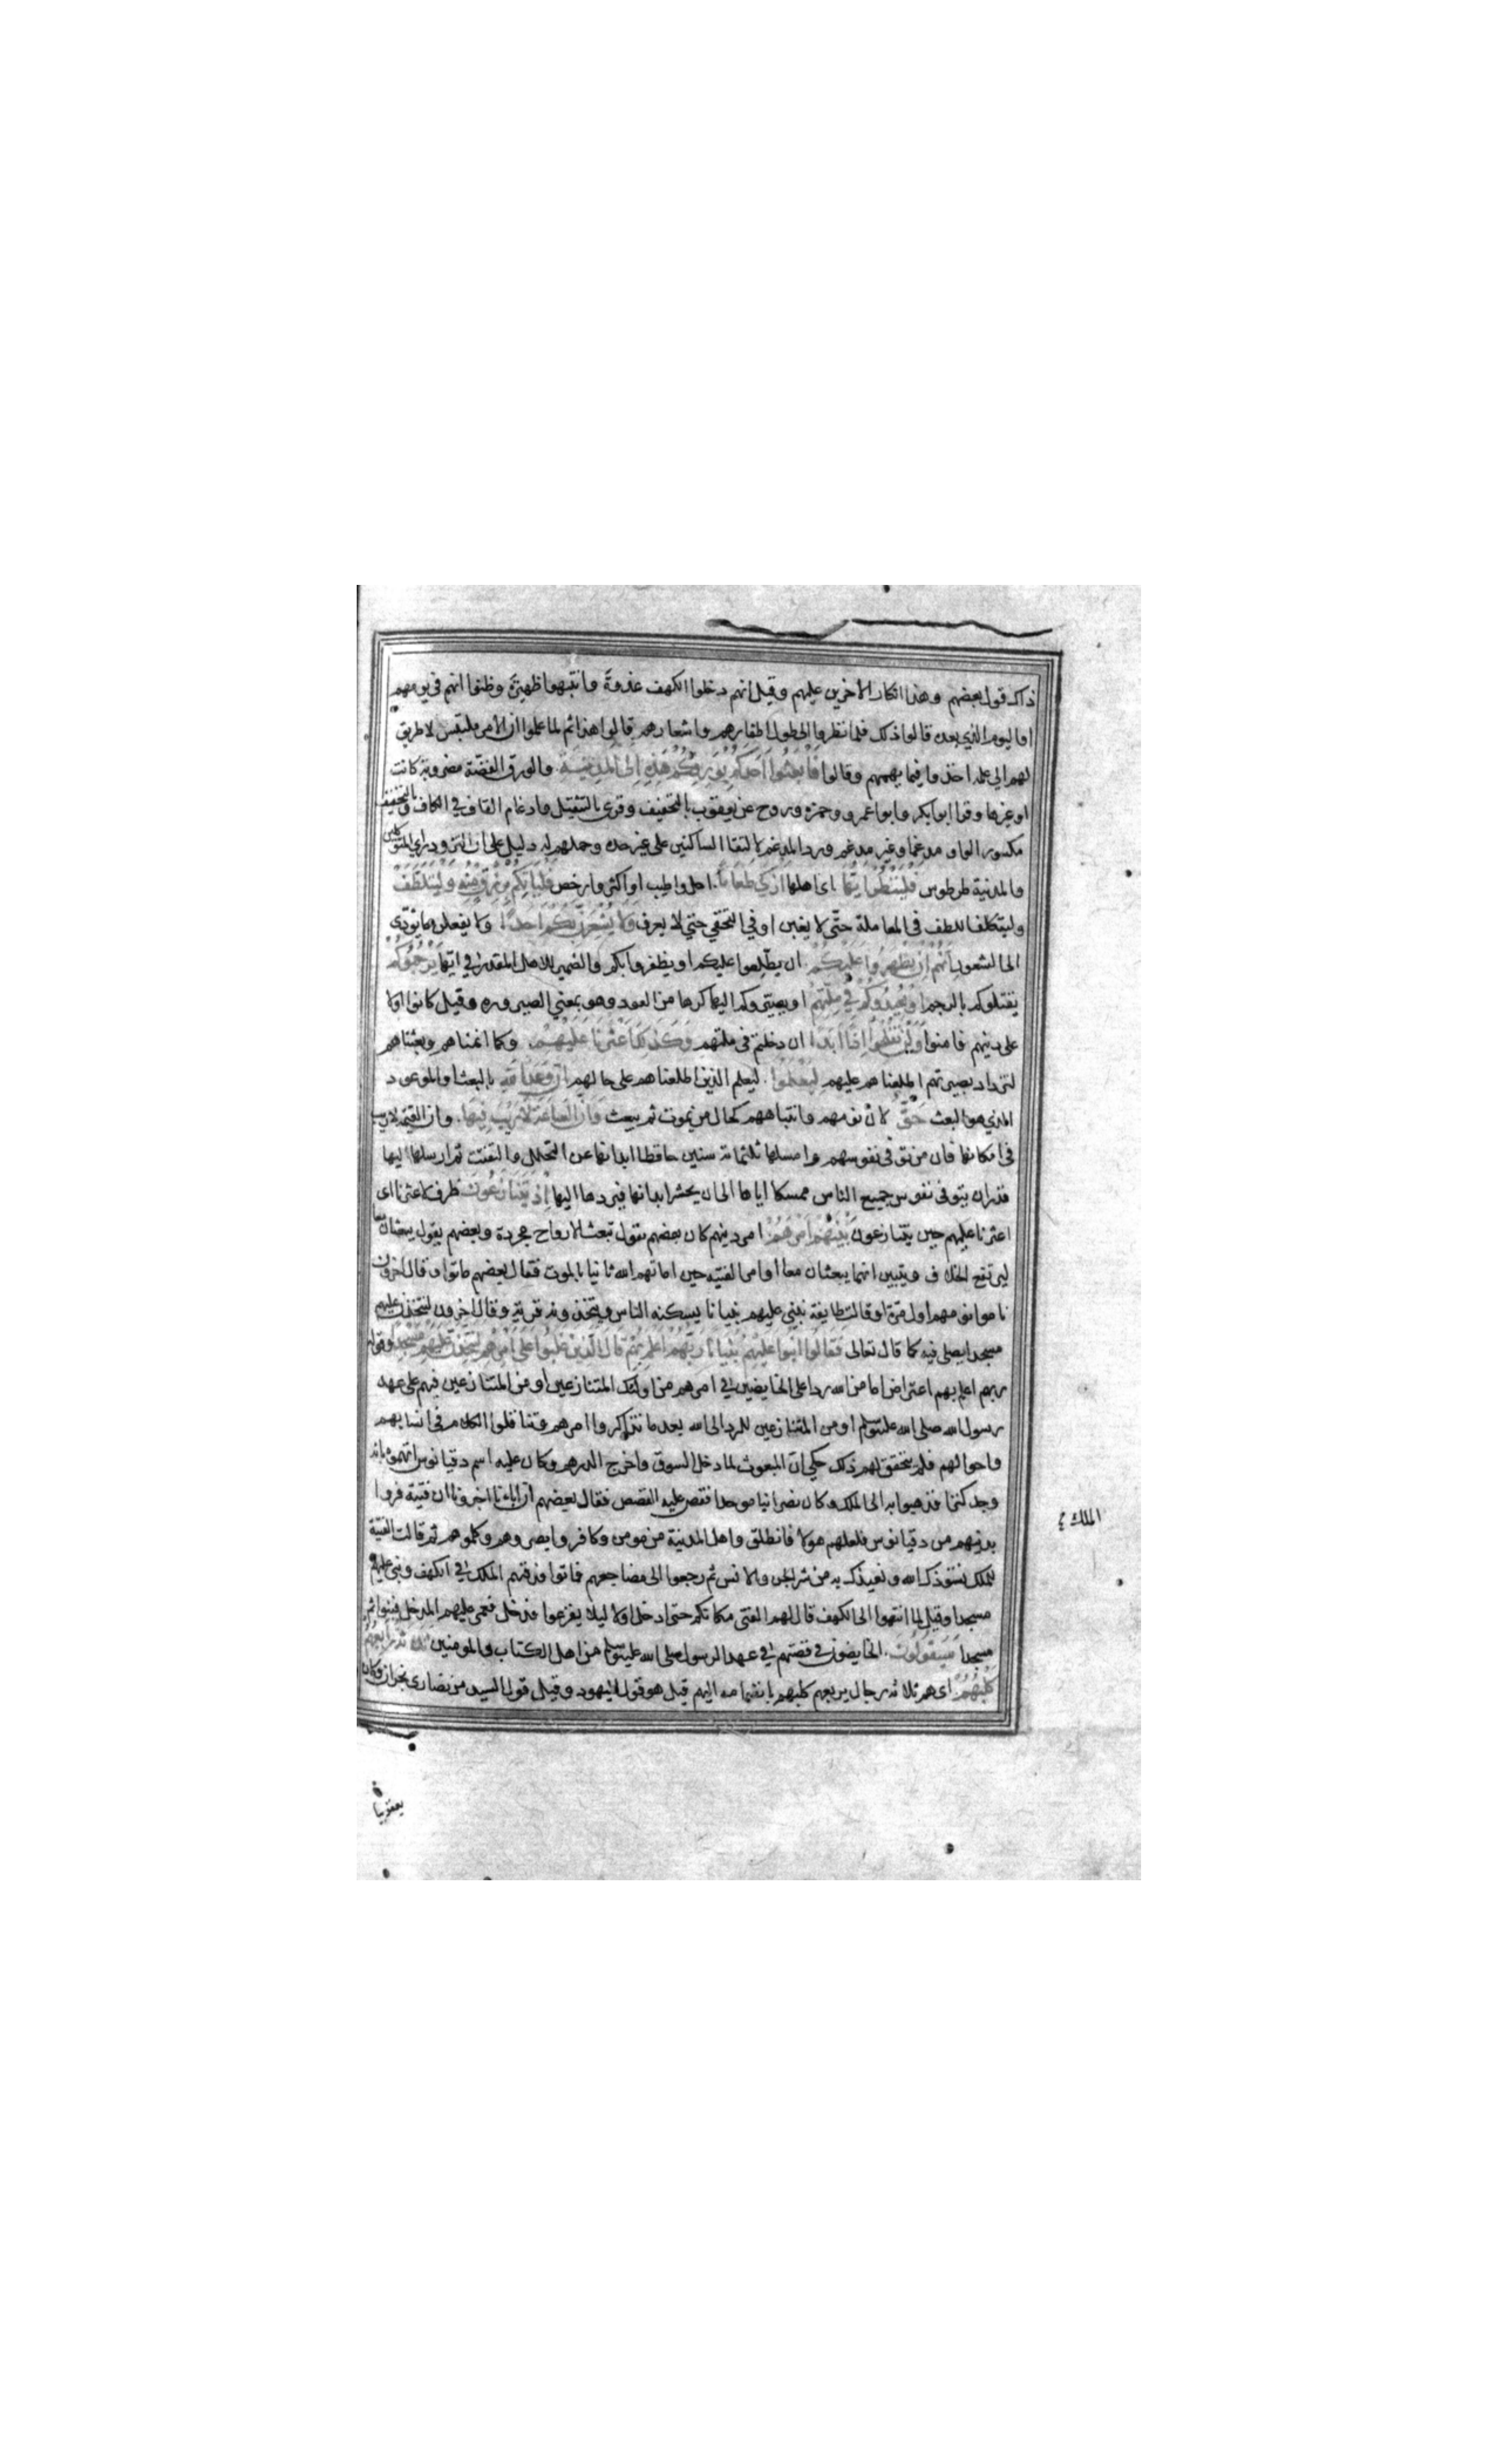 ذاك قول بعضهم وهذا انكار الاخرين عليهم وقيل انهم دخلوا الكهف غدوةً وانتبهوا ظهيرةً وظنوا انهم في يومهم
او اليوم الذي بعده قالوا ذلك فلما نظروا الى طول اظفارهم واشعارهم قالوا هذا ثم لما علموا ان الأمر ملتبس لا طريق
لهم الى علمه اخذوا فيما يهمهم وقالوا فَابْعَثُوا اَحَدَكُمْ بِوَرِقِكُمْ هَذِهِ اِلَى الْمَدِينَةِ والورق الفضّة مضروبة كانت
او غيرها وقرا ابو بكر وابو عمرو وحمزه وروح عن يعقوب بالتخفيف وقرئ بالتثقيل وادغام القاف في الكاف وبالتخفيف
مكسور الواو مدغما وغير مدغم ورد المدغم بالتقاا الساكنين على غير حده وحملهم له دليل على ان التزود راي المتوكلين
والمدنية طرطوس فَلْيَنْظُرْ اَيُّهَا اى اهلها اَزْكَى طَعَامًا احل واطيب او اكثر وارخص فَلْيَاْتِكُمْ بِرِزْقٍ مِنْهُ وَلْيَتَلَطَّفْ
وليتكلف اللطف فى المعاملة حتّى لا يغبن او في التخفي حتي لا يعرف وَلَا يُشْعِرَنَّ بِكُمْ اَحَدًا ولا يفعلن ما يؤدّى
الى الشعور اِنَّهُمْ اِنْ يَظْهَرُوا عَلَيْكُمْ ان يطّلعوا عليكم او يظفروا بكم والضمير للاهل المقدر في ايها يَرْجُمُوكُمْ
يقتلوكم بالرجم اَوْ يُعِيدُوكُمْ فِي مِلَّتِهِمْ او يصيّروكم اليها كرها من العود وهو بمعني الصيروره وقيل كانوا اولا
على دينهم فامنوا وَلَنْ تُفْلِحُوا اِذًا اَبَدًا ان دخلتم فى ملتهم وَكَذَلِكَ اَعْثَرْنَا عَلَيْهِمْ وكما انمناهم وبعثناهم
لتزداد بصيرتهم اطلعنا هم عليهم لِيَعْلَمُوا ليعلم الذين اطلعناهم على حالهم اَنَّ وَعْدَ اللّٰهِ بالبعث او الموعود
الذي هو البعث حَقٌّ لان نومهم وانتباههم كحال من يموت ثم يبعث وَاَنَّ السَّاعَةَ لَا رَيْبَ فِيهَا وان القيمة لا ريب
فى امكانها فان من توفى نفوسهم وامسكها ثلثمائة سنين حافظا ابدانها عن التحلل والتفتت ثم ارسلها اليها
قدر ان يتوفى نفوس جميع الناس ممسكا اياها الى ان يحشر ابدانها فيردها اليها اِذْ يَتَنَازَعُونَ ظرف لاعثرنا اى
اعثرنا عليهم حين يتنازعون بَيْنَهُمْ اَمْرَهُمْ امر دينهم كان بعضهم يقول تبعث الارواح مجردة وبعضهم يقول يبعثان معا
ليرتفع الخلاف ويتبين انهما يبعثان معا او امر الفتيه حين اماتهم الله ثانيا بالموت فقال بعضهم ماتوا وقال اخرون
ناموا نومهم اول مرة او قالت طايفة نبني عليهم بنيانا يسكنه الناس ويتخذونه قرية وقال اخرون لنتخذن عليهم
مسجدا يصلى فيه كما قال تعالى فَقَالُوا ابْنُوا عَلَيْهِمْ بُنْيَانًا رَبُّهُمْ اَعْلَمُ بِهِمْ قَالَ الَّذِينَ غَلَبُوا عَلَى اَمْرِهِمْ لَنَتَّخِذَنَّ عَلَيْهِمْ مَسْجِدًا وقوله
ربهم اعلم بهم اعتراض اما من الله ردا على الخايضين في امرهم من اولئك المتنازعين او من المتنازعين فيهم على عهد
رسول الله صلى الله عليه وسلم او من المتنازعين للرد الى الله بعد ما تذاكروا امرهم وتناقلوا الكلام فى انسابهم
واحوالهم فلم يتحقق لهم ذلك حكي انّ المبعوث لما دخل السوق واخرج الدرهم وكان عليه اسم دقيانوس اتهموه بانه
وجد كنزا فذهبوا به الى الملك وكان نصرانيا موحدا فقص عليه القصص فقال بعضهم ان اباءنا اخبرونا ان فتية فروا
بدينهم من دقيانوس فلعلهم هولا فانطلق واهل المدنية من مومن وكافر وابصروهم وكلموهم ثم قالت الفتية
للملك نستودك الله ونعيذك به من شر الجن والانس ثم رجعوا الى مضاجعهم فماتوا فدفنهم الملك في الكهف وبنى عليهم
مسجدا وقيل لما انتهوا الى الكهف قال لهم الفتى مكانكم حتى ادخل اولا ليلا يفزعوا فدخل فعمى عليهم المدخل فبنوا ثم
مسجدا سَيَقُولُونَ الخايضون في قصتهم في عهد الرسول صلى الله عليه وسلم من اهل الكتاب والمومنين ثَلَاثَةٌ رَابِعُهُمْ
كَلْبُهُمْ اى هم ثلاثه رجال يربعهم كلبهم بانضمامه اليهم قيل هو قول اليهود وقيل قول السيد من نصارى نجران وكان
الملك
يعقوبيا